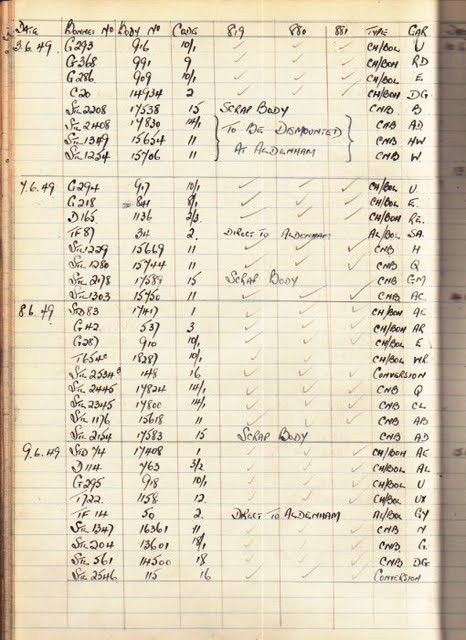 DATE BONNET NO BODY NO CODE 819 880 881 TYPE GAR
3.6.49 G293 916 10/1 ✓ ✓ ✓ CH/BOL U
G368 991 9 ✓ ✓ ✓ CH/BOH RD
G286 909 10/1 ✓ ✓ ✓ CH/BOL E
C20 14934 2 ✓ ✓ ✓ CH/BOH DG
STL 2208 17538 15 SCRAP BODY CNB B
STL 2408 17830 14/1 TO BE DISMOUNTED CNB AD
STL 1349 15654 11 AT ALDENHAM CNB HW
STL 1254 15706 11 CNB W
7.6.49 G294 917 10/1 ✓ ✓ ✓ CH/BOL U
G218 841 8/1 ✓ ✓ ✓ CH/BOL E
D165 1136 2/3 ✓ ✓ ✓ CH/BOH RE
TF 87 34 2 DIRECT TO ALDENHAM AL/BOL SA
STL 1229 15669 11 ✓ ✓ ✓ CNB H
STL 1280 15744 11 ✓ ✓ ✓ CNB Q
STL 2178 17589 15 SCRAP BODY CNB GM
STL 1303 15750 11 ✓ ✓ ✓ CNB AC
8.6.49 STD 83 17417 1 ✓ ✓ ✓ CH/BOH AE
G42 537 3 ✓ ✓ ✓ CH/BOH AR
G287 910 10/1 ✓ ✓ ✓ CH/BOL E
1828 10/1 ✓ ✓ ✓ CH/BOL WR
STL 2534 148 16 ✓ ✓ ✓ CONVERSION
STL 2445 17824 14/1 ✓ ✓ ✓ CNB Q
STL 2345 17800 14/1 ✓ ✓ ✓ CNB CL
STL 1176 15618 11 ✓ ✓ ✓ CNB AB
STL 2154 17583 15 SCRAP BODY CNB AD
9.6.49 STD 74 17408 1 ✓ ✓ ✓ CH/BOH AE
D114 763 3/2 ✓ ✓ ✓ CH/BOL AL
G295 918 10/1 ✓ ✓ ✓ CH/BOL U
T722 1158 12 ✓ ✓ ✓ CH/BOL UX
TF 14 50 2 DIRECT TO ALDENHAM AL/BOL GY
STL 1347 16361 11 ✓ ✓ ✓ CNB N
STL 204 13601 18/1 ✓ ✓ ✓ CNB G
STL 561 14500 18 ✓ ✓ ✓ CNB DG
STL 2546 115 16 ✓ ✓ ✓ CONVERSION